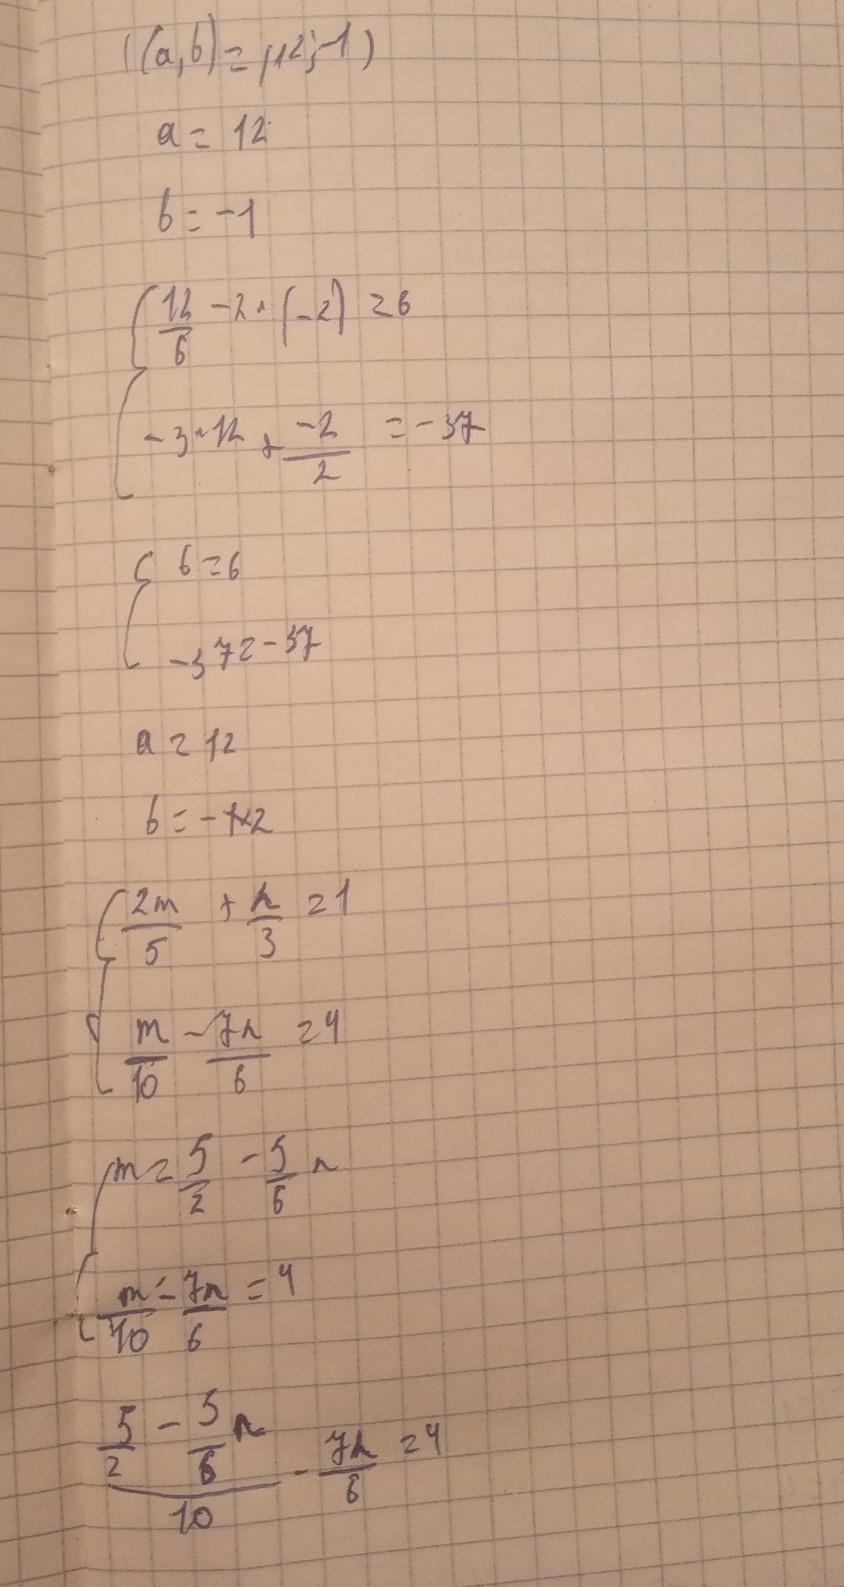 ((a,b)=(12;-1)
a = 12
b = -1
12/6 - 2·(-2) = 6
-3·12 + -2/2 = -37
6=6
-37=-37
a = 12
b = -2
2m/5 + n/3 = 1
m/10 - 7n/6 = 4
m = 5/2 - 5/6 n
m/10 - 7n/6 = 4
(5/2 - 5/6 n)/10 - 7n/6 = 4